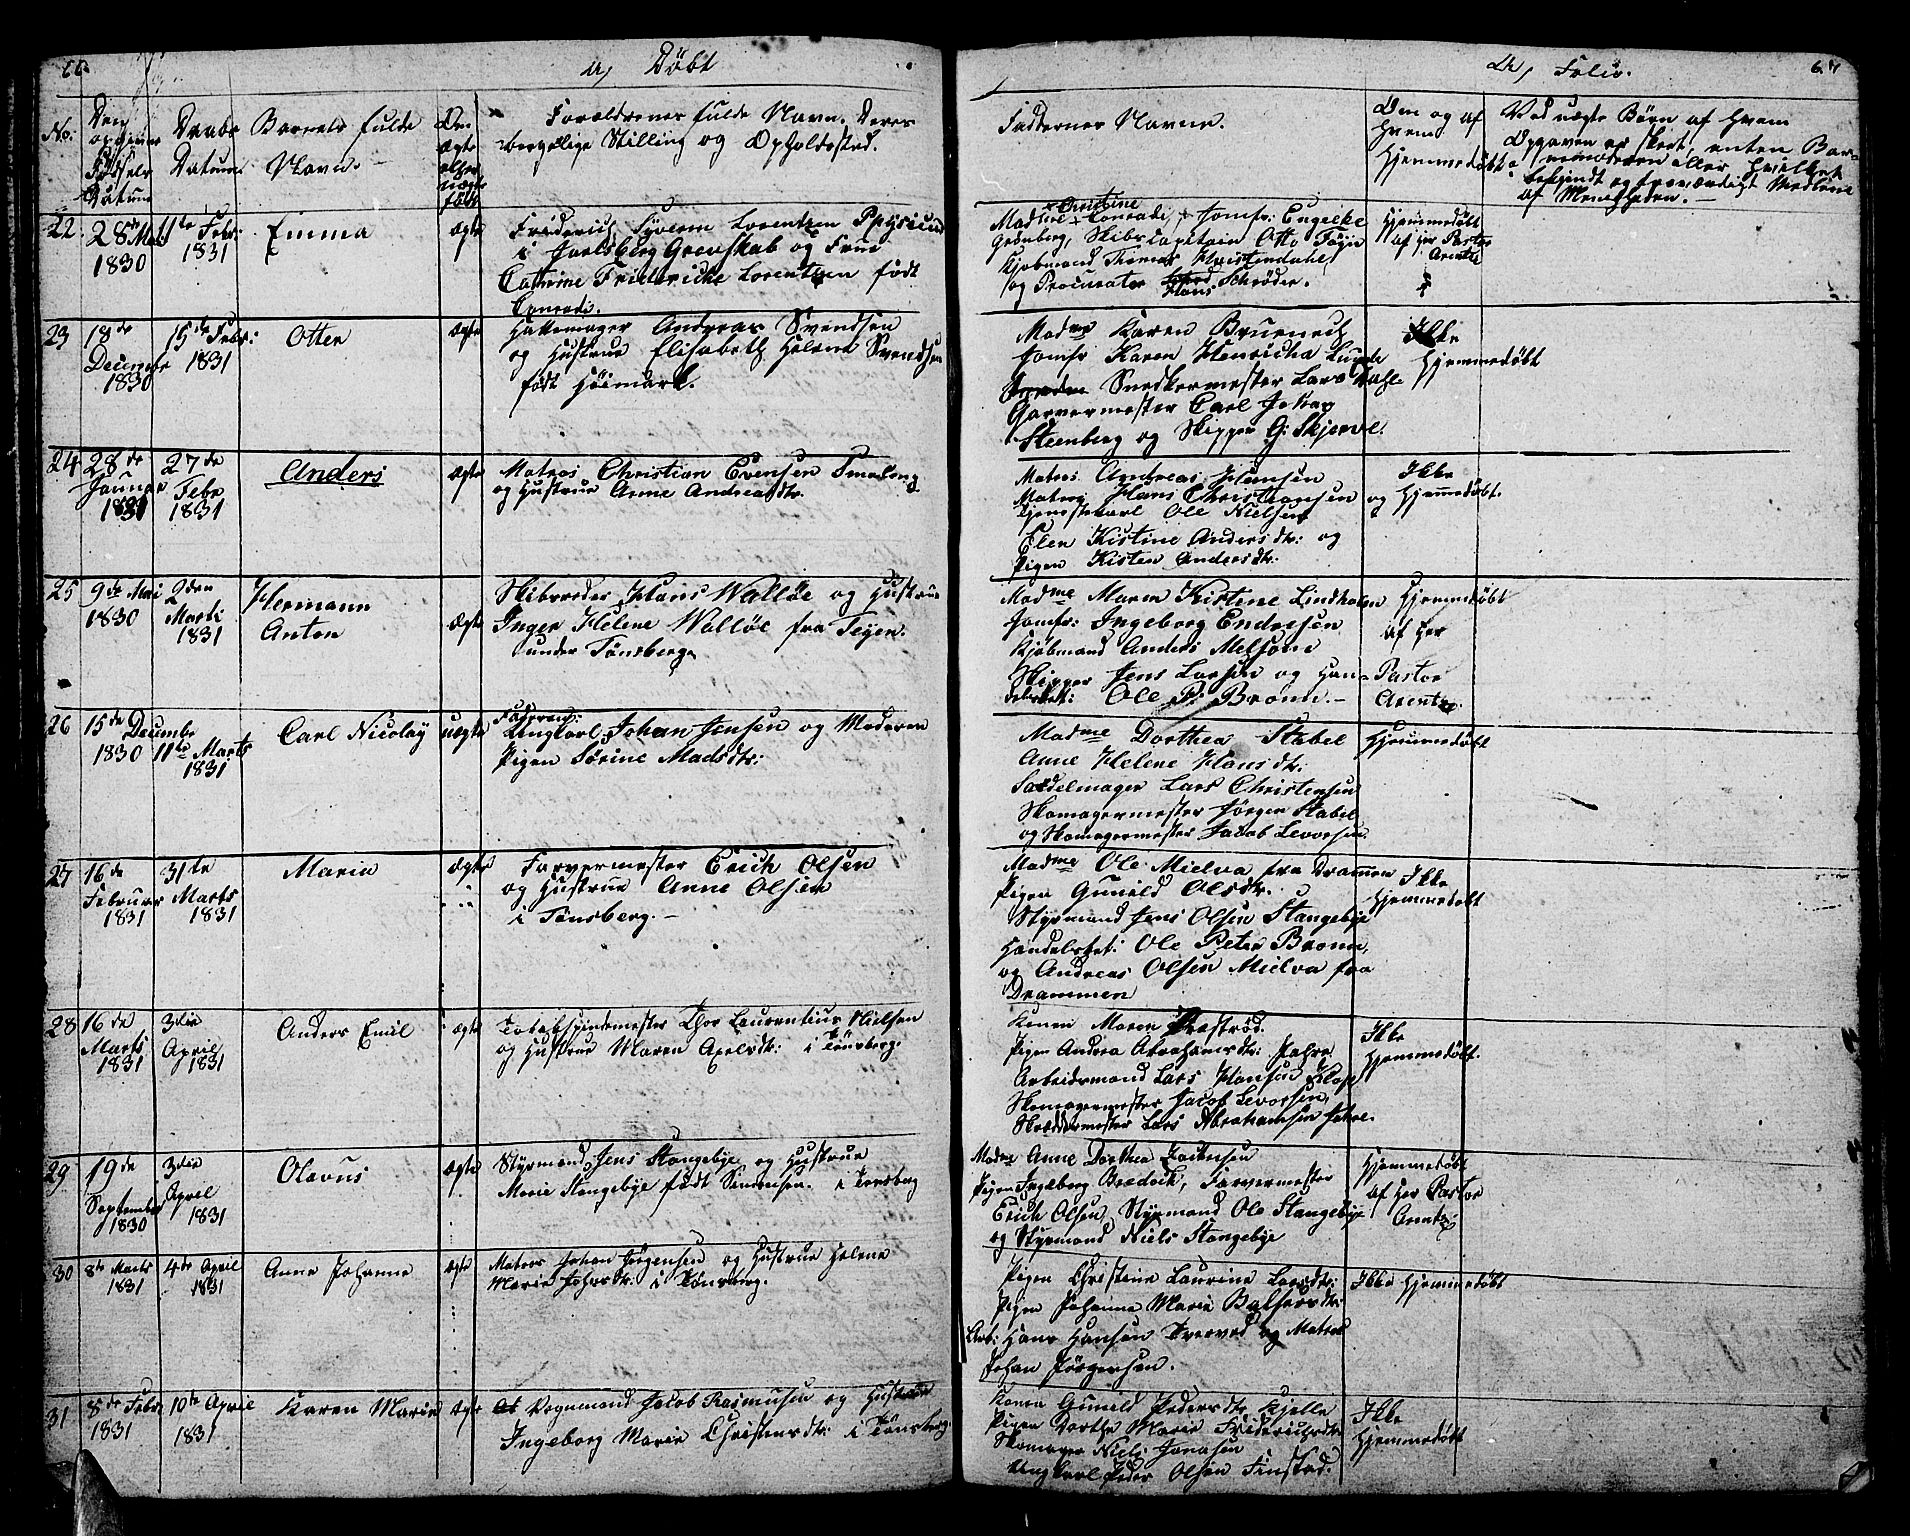 66.
a, Døbt
No:
Den opgivne Fødsels Datum
Daabs Datum
Barnets fulde Navn
Om ægte eller uægte født
Forældrenes fulde Navn. Deres
borgelige Stilling og Opholdssted.
22.
28de Mai 1830
11te Febr: 1831
Emma
ægte
Friderich Lorentzen Physicus
i Jarlsberg Grevskab og Frue
Cathrine Friedericke Lorentzen født
Conradi.
23
18de December 1830
15de Febr: 1831
Otter
ægte
Andreas Svendsen
og Hustrue Elisabeth Helene Svendsen
født Høimark.
24
28de Januar 1831
27de Febr 1831
Anders
ægte
Matros Christian Evensen
og Hustrue Anne Andreasdtr.
25
9de Mai 1830
2den Marti 1831
Hermann Anton
ægte
Skibsreder Hans Walløe og Hustrue
Inger Helene Walløe fra Teyen
under Tønsberg.
26
15de Decembr 1830
11te Marts 1831
Carl Nicolay
uægte
Faderen:
Ungkarl Johan Jensen og Moderen
Pigen Sørine Madsdtr:
27
16de Februar 1831
31te Marts 1831
Maria
ægte
Farvermester Erich Olsen
og Hustrue Anne Olsen
i Tønsberg. –
28
16de Marts 1831
3die April 1831
Anders Emil
ægte
Tobakspindemester Thor Laurentius Nielsen
og Hustrue Maren Axelsdtr: i Tønsberg.
29
19de September 1830
3die April 1831
Olavus
ægte
Styrmand Jens Stangebye og Hustrue
Marie Stangebye født Simonsen. i Tønsberg
30
8de Marts 1831
4de April 1831
Anne Johanne
ægte
Matros Johan Jørgensen og Hustrue Helene
Marie i Tønsberg.
31
8de Febr: 1831
10de April 1831
Karen Marie
ægte
Vognmand Jacob Rasmusen og Hustrue
Ingeborg Marie Christensdtr: i Tønsberg.
Folio.
67
Faddernes Navne.
Om og af Hvem Hjemmedøbt
Ved uægte Børn af Hvem
Opgaven er skeet, enten Bar-
nemoderen eller Hvilket
bekjendt og troværdigt Medlem
af Menigheden. –
Christine
Madme Conradi, Jomfr: Engelke
Grønberg, Skibscapitain Otto
Kjøbmand Thomas
og Procurator Hans Schrøder.
Hjemmedøbt af Her Pastor Arentz
Madme Karen Bruenech
Jomfr Karen Henricha Lunde
Snedkermester Lars Dahl
Garvermester Carl Johan
Steenberg og Skipper G: Skjerve.
Ikke Hjemmedøbt
Matros Andreas Hansen
Matros Hans Christiansen og
Tjenestekarl Ole Nielsen
Elen Kistine Andersdtr: og
Pigen Kisten Andersdtr:
Ikke Hjemmedøbt.
Madme Maren Kistine Lindholm
Jomfr: Ingeborg Endresen
Kjøbmand Anders Melsom
Skipper Jens Larsen og Han-
Ole P: Bronn. –
Hjemmedøbt af Her Pastor Arentz.
Madme Dorthea Stabel
Anne Helene Hansdtr:
Sadelmager Lars Christensen
Skomagermester Jørgen Stabel
og Skomagermester Jacob Levorsen
Hjemmedøbt
Madme Ole Mielva fra Drammen
Pigen Gunild Olsdtr:
Styrmand Jens Olsen Stangebye
Ole Peter Bronn,
og Andreas Olsen Mielva fra
Drammen
Ikke Hjemmedøbt
Konen Maren
Pigen Andrea Abrahamsdtr: Jahre
Arbeidsmand Lars Hansen
Skomagermester Jacob Levorsen,
Skræddermester Lars Abrahamsen Jahre.
Ikke Hjemmedøbt.
Madme Anne Dorthea
Pigen Ingeborg Bredvik, Farvermester
Erich Olsen, Styrmand Ole Stangebye
og Styrmand Niels Stangebye
Hjemmedøbt af Her Pastor Arentz
Pigen Christine Laurine Larsdtr:
Pigen Johanne Marie
Arb: Hans Hansen og Matros
Johan Jørgensen.
Ikke Hjemmedøbt
Kone Gunild Pedersdtr Kjelle
Pigen Dorthe Marie Fridrichsdtr
Skomager Niels Jonasen
Ungkarl Peder Olsen Finstad.
Ikke Hjemmedøbt